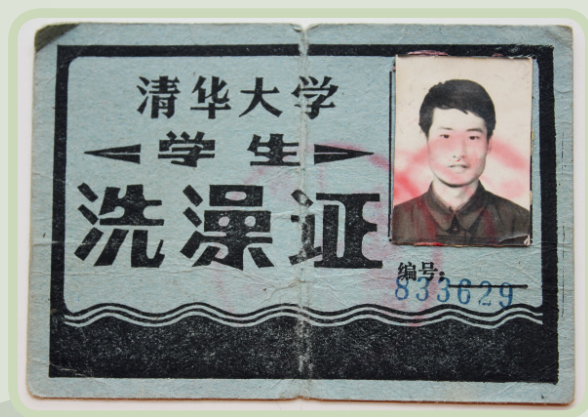 清华大学
学生
洗澡证
编号:
833629